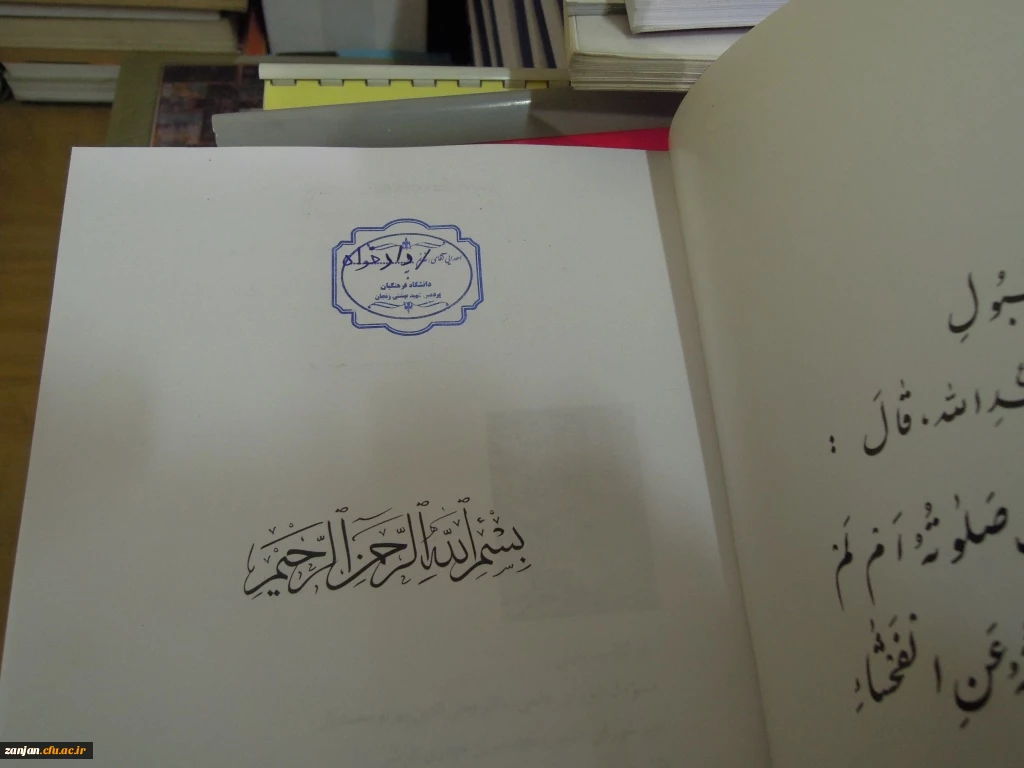 اهدایی آقای دادخواه
دانشگاه فرهنگیان
پردیس شهید بهشتی زنجان
بِسْمِ اللَّهِ الرَّحْمَنِ الرَّحِيْمِ
بُوْلِ
اللّه. قٰالَ :
صَلٰوتُهُ اَمْ لَمْ
عَنِ الْفَحْشٰاءِ
zanjan.cfu.ac.ir